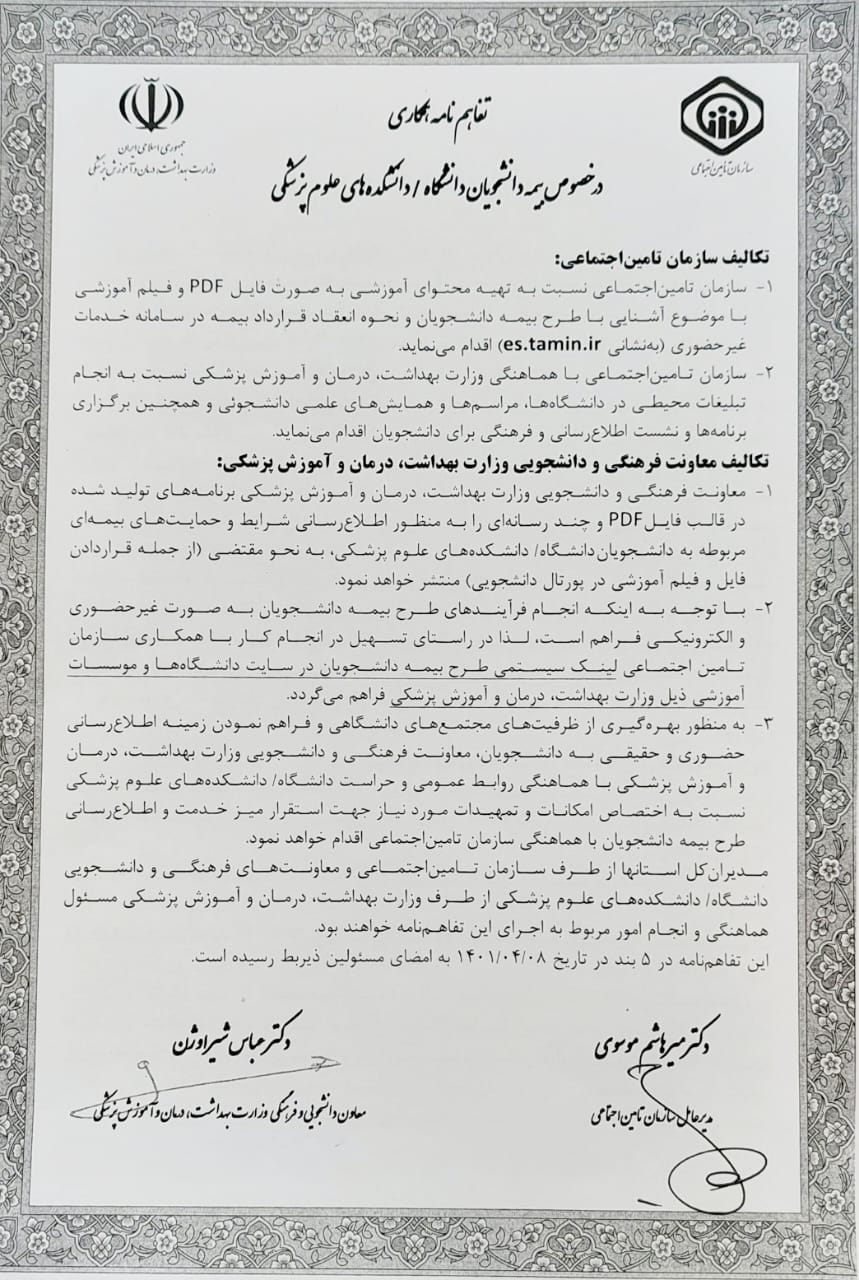 تفاهم نامه همکاری
در خصوص بیمه دانشجویان دانشگاه / دانشکده های علوم پزشکی
سازمان تامین اجتماعی
جمهوری اسلامی ایران
وزارت بهداشت، درمان و آموزش پزشکی
تکالیف سازمان تامین‌اجتماعی:
۱- سازمان تامین‌اجتماعی نسبت به تهیه محتوای آموزشی به صورت فایل PDF و فیلم آموزشی
با موضوع آشنایی با طرح بیمه دانشجویان و نحوه انعقاد قرارداد بیمه در سامانه خدمات
غیرحضوری (به‌نشانی es.tamin.ir) اقدام می‌نماید.
۲- سازمان تامین‌اجتماعی با هماهنگی وزارت بهداشت، درمان و آموزش پزشکی نسبت به انجام
تبلیغات محیطی در دانشگاه‌ها، مراسم‌ها و همایش‌های علمی دانشجوئی و همچنین برگزاری
برنامه‌ها و نشست اطلاع‌رسانی و فرهنگی برای دانشجویان اقدام می‌نماید.
تکالیف معاونت فرهنگی و دانشجویی وزارت بهداشت، درمان و آموزش پزشکی:
۱- معاونت فرهنگی و دانشجویی وزارت بهداشت، درمان و آموزش پزشکی برنامه‌های تولید شده
در قالب فایل PDF و چند رسانه‌ای را به منظور اطلاع‌رسانی شرایط و حمایت‌های بیمه‌ای
مربوطه به دانشجویان دانشگاه/ دانشکده‌های علوم پزشکی، به نحو مقتضی (از جمله قراردادن
فایل و فیلم آموزشی در پورتال دانشجویی) منتشر خواهد نمود.
۲- با توجه به اینکه انجام فرآیندهای طرح بیمه دانشجویان به صورت غیرحضوری
و الکترونیکی فراهم است، لذا در راستای تسهیل در انجام کار با همکاری سازمان
تامین اجتماعی لینک سیستمی طرح بیمه دانشجویان در سایت دانشگاه‌ها و موسسات
آموزشی ذیل وزارت بهداشت، درمان و آموزش پزشکی فراهم می‌گردد.
۳- به منظور بهره‌گیری از ظرفیت‌های مجتمع‌های دانشگاهی و فراهم نمودن زمینه اطلاع‌رسانی
حضوری و حقیقی به دانشجویان، معاونت فرهنگی و دانشجویی وزارت بهداشت، درمان
و آموزش پزشکی با هماهنگی روابط عمومی و حراست دانشگاه/ دانشکده‌های علوم پزشکی
نسبت به اختصاص امکانات و تمهیدات مورد نیاز جهت استقرار میز خدمت و اطلاع‌رسانی
طرح بیمه دانشجویان با هماهنگی سازمان تامین‌اجتماعی اقدام خواهد نمود.
مدیران‌کل استانها از طرف سازمان تامین‌اجتماعی و معاونت‌های فرهنگی و دانشجویی
دانشگاه/ دانشکده‌های علوم پزشکی از طرف وزارت بهداشت، درمان و آموزش پزشکی مسئول
هماهنگی و انجام امور مربوط به اجرای این تفاهم‌نامه خواهند بود.
این تفاهم‌نامه در ۵ بند در تاریخ ۱۴۰۱/۰۴/۰۸ به امضای مسئولین ذیربط رسیده است.
دکتر میرهاشم موسوی
مدیرعامل سازمان تامین اجتماعی
دکتر عباس شیراوژن
معاون دانشجویی و فرهنگی وزارت بهداشت، درمان و آموزش پزشکی